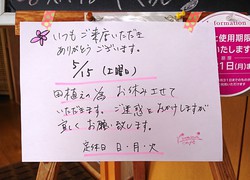 いつもご来店いただき
ありがとうございます。
5/15(土曜日)
田植えの為 お休みさせて
いただきます。ご迷惑をおかけしますが
宜しくお願い致します。
定休日 日・月・火
formation
使用期限
いたします
1日(月)